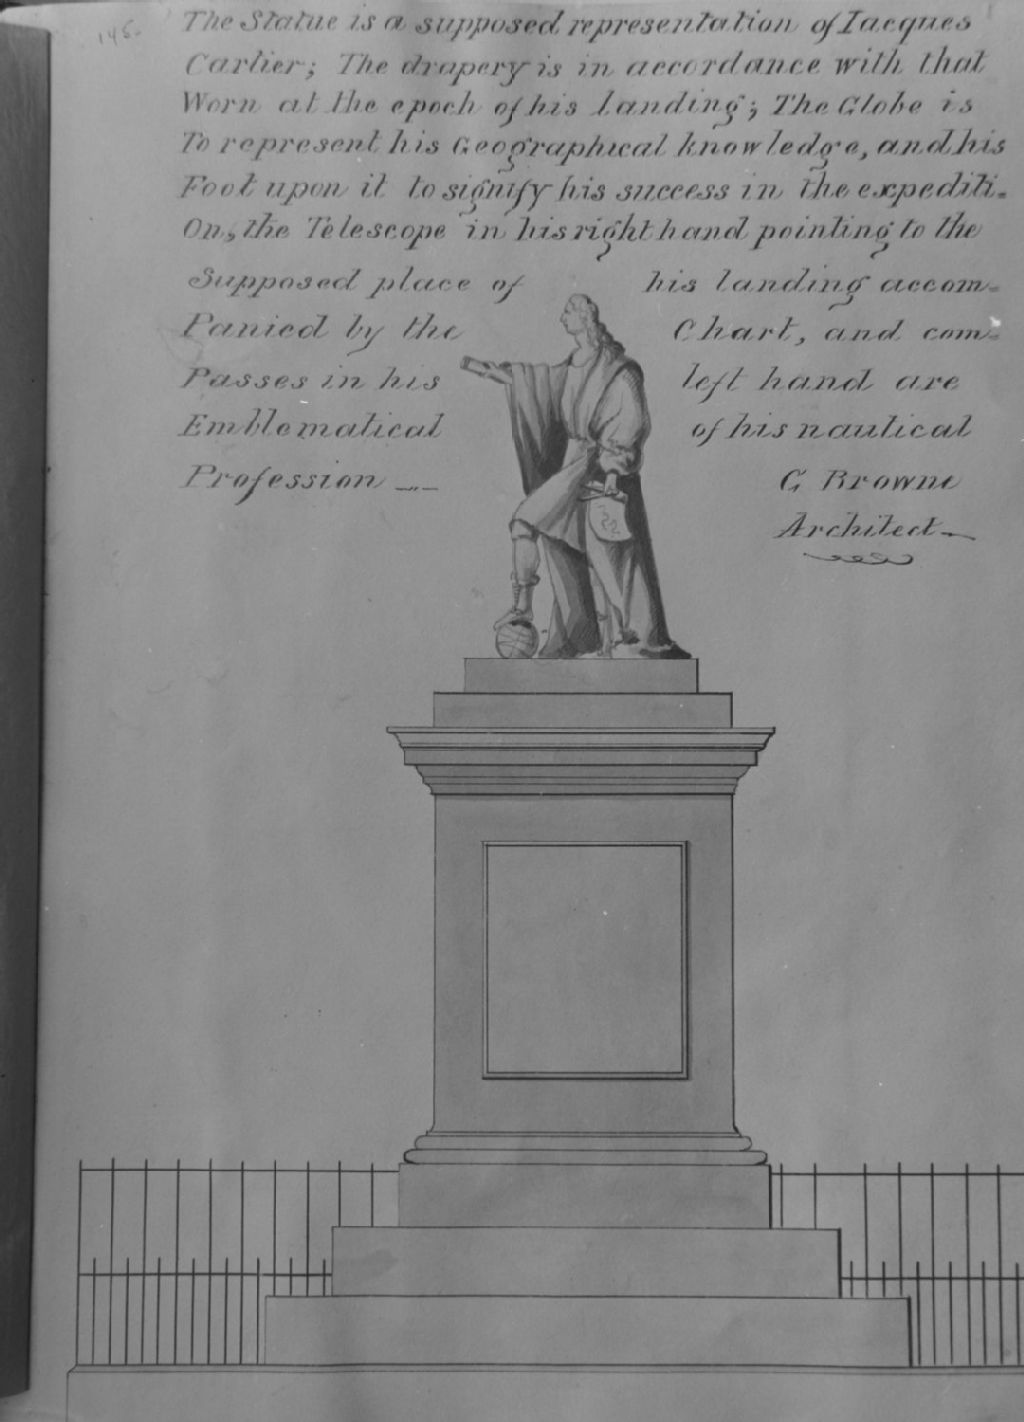 145.
The Statue is a supposed representation of Iacques
Cartier; The drapery is in accordance with that
Worn at the epoch of his landing; The Globe is
To represent his Geographical knowledge, and his
Foot upon it to signify his success in the expediti-
On, the Telescope in his right hand pointing to the
Supposed place of his landing accom-
Panied by the Chart, and com-
Passes in his left hand are
Emblematical of his nautical
Profession
G Browne
Architect